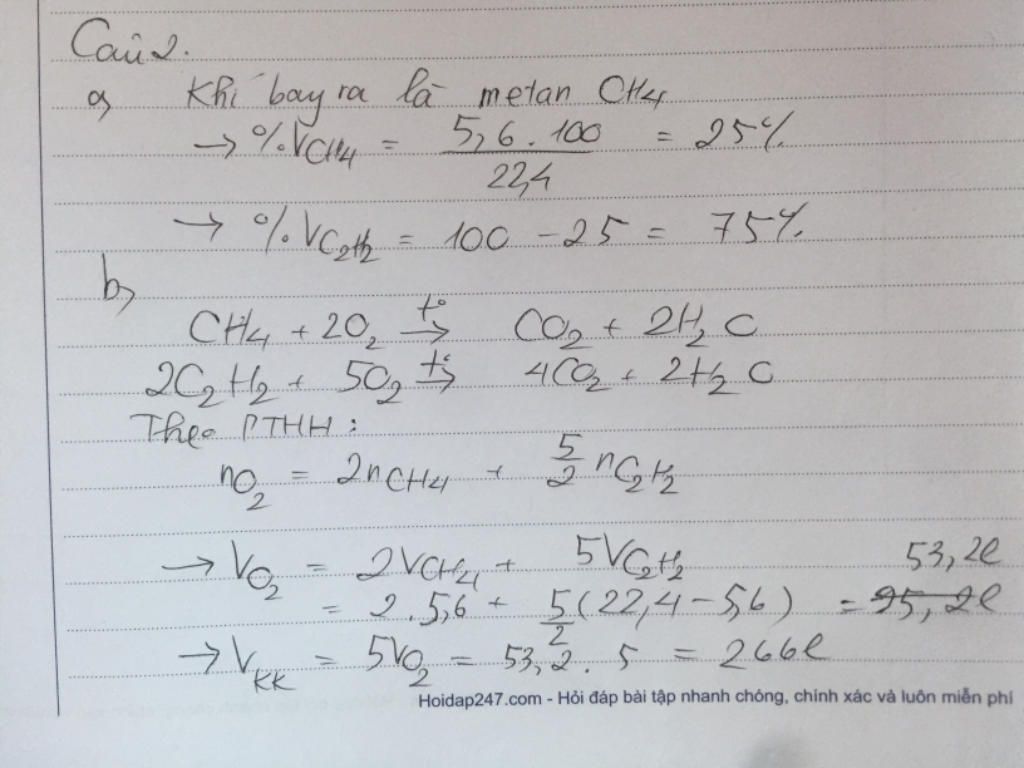 Câu 2.
a, Khí bay ra là metan CH4
→ %VCH4 = 5,6 . 100 / 22,4 = 25%
→ %VC2H2 = 100 - 25 = 75%
b,
CH4 + 2O2 t°→ CO2 + 2H2O
2C2H2 + 5O2 t°→ 4CO2 + 2H2O
Theo PTHH:
nO2 = 2nCH4 + 5/2 nC2H2
→ VO2 = 2VCH4 + 5VC2H2 53,2l
= 2.5,6 + 5/2 (22,4 - 5,6) = 95,2l
→ VKK = 5VO2 = 53,2 . 5 = 266l
Hoidap247.com - Hỏi đáp bài tập nhanh chóng, chính xác và luôn miễn phí